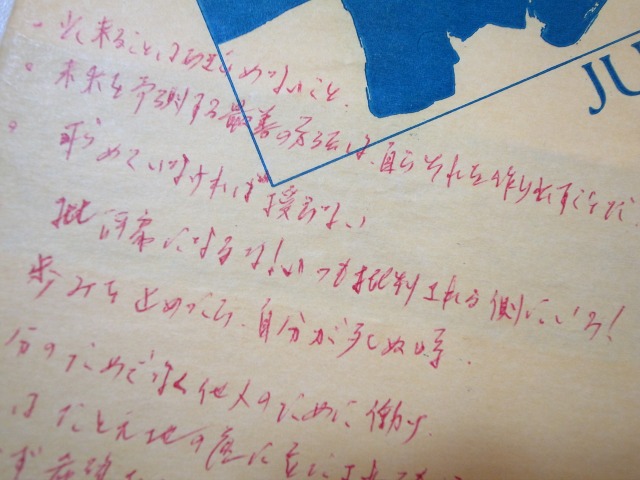 ・出来ることはあきらめないこと.
・未来を予測する最善の方法は、自らそれを作り出すことだ.
・求めていなければ授からない
批評家になるな!いつも批判される側にいろ!
歩みを止めたら、自分が死ぬ時.
分のためでなく他人のために働け
はたとえ地の底に
JU